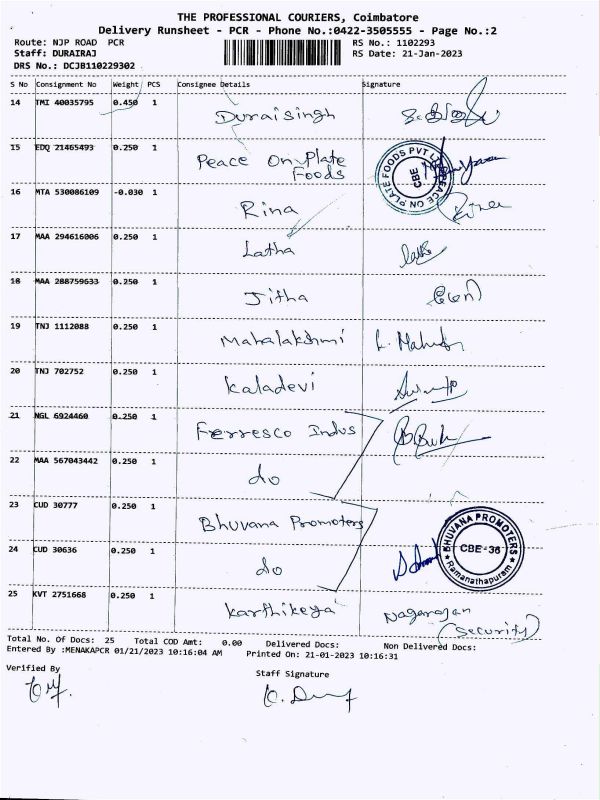 THE PROFESSIONAL COURIERS, Coimbatore
Delivery Runsheet - PCR - Phone No.:0422-3505555 - Page No.:2
Route: NJP ROAD PCR RS No.: 1102293
Staff: DURAIRAJ RS Date: 21-Jan-2023
DRS No.: DCJB110229302
S No Consignment No Weight PCS Consignee Details Signature
14 TMI 40035795 0.450 1 Duraisingh
15 EDQ 21465493 0.250 1 Peace On Plate
Foods
PEACE ON PLATE FOODS PVT LTD CBE
16 MTA 530086109 -0.030 1 Rina Rina
17 MAA 294616006 0.250 1 Latha
18 MAA 288759633 0.250 1 Jitha
19 TNJ 1112088 0.250 1 Mahalakshmi
20 TNJ 702752 0.250 1 Kaladevi
21 NGL 6924460 0.250 1 Ferresco Indus
22 MAA 567043442 0.250 1 do
23 CUD 30777 0.250 1 Bhuvana Promoters
24 CUD 30636 0.250 1 do
BHUVANA PROMOTERS CBE-36 Ramanathapuram
25 KVT 2751668 0.250 1 Karthikeya Nagarajan
(Security)
Total No. Of Docs: 25 Total COD Amt: 0.00 Delivered Docs: Non Delivered Docs:
Entered By :MENAKAPCR 01/21/2023 10:16:04 AM Printed On: 21-01-2023 10:16:31
Verified By Staff Signature